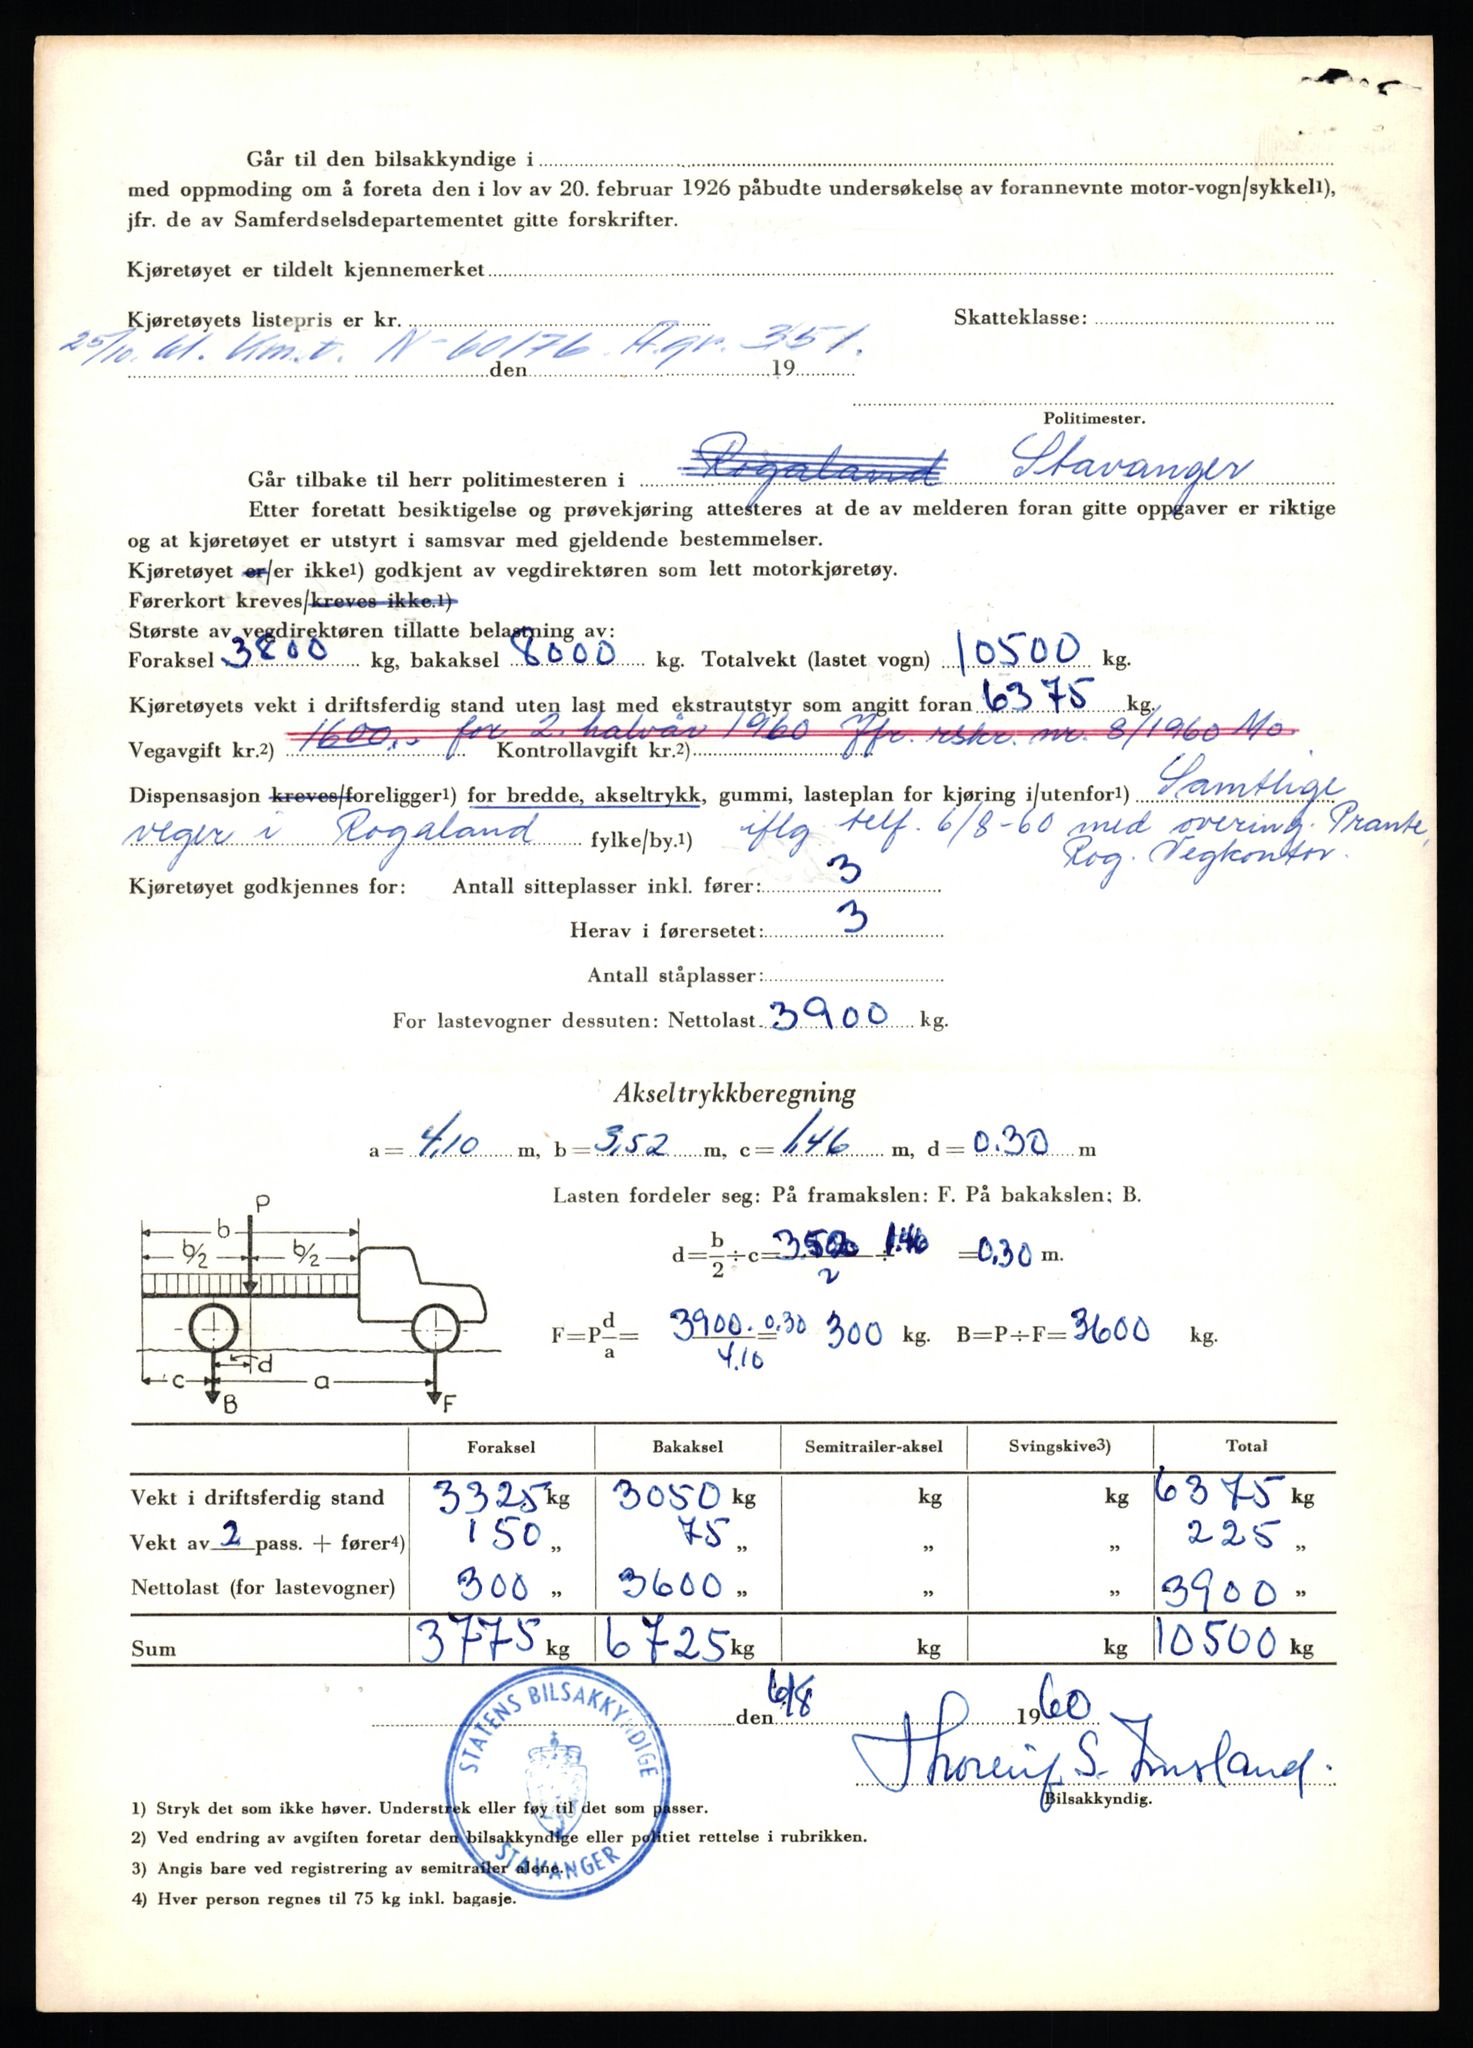 Går til den bilsakkyndige i
med oppmoding om å foreta den i lov av 20. februar 1926 påbudte undersøkelse av forannevnte motor-vogn/sykkel1),
jfr. de av Samferdselsdepartementet gitte forskrifter.
Kjøretøyet er tildelt kjennemerket
Kjøretøyets listepris er kr. Skatteklasse:
25/10. bl. Km.t. N-60176. A.gr. 351.
den 19
Politimester.
Går tilbake til herr politimesteren i Rogaland Stavanger
Etter foretatt besiktigelse og prøvekjøring attesteres at de av melderen foran gitte oppgaver er riktige
og at kjøretøyet er utstyrt i samsvar med gjeldende bestemmelser.
Kjøretøyet er/er ikke1) godkjent av vegdirektøren som lett motorkjøretøy.
Førerkort kreves/kreves ikke.1)
Største av vegdirektøren tillatte belastning av:
Foraksel 3800 kg, bakaksel 8000 kg. Totalvekt (lastet vogn) 10500 kg.
Kjøretøyets vekt i driftsferdig stand uten last med ekstrautstyr som angitt foran 6375 kg.
Vegavgift kr.2) 1600.- for 2. halvår 1960 Jfr. rskr. nr. 8/1960 Mo
Kontrollavgift kr.2)
Dispensasjon kreves/foreligger1) for bredde, akseltrykk, gummi, lasteplan for kjøring i/utenfor1) Samtlige
veger i Rogaland fylke/by.1) iflg telf. 6/8-60 med overing. Prante,
Rog. Vegkontor.
Kjøretøyet godkjennes for: Antall sitteplasser inkl. fører: 3
Herav i førersetet: 3
Antall ståplasser:
For lastevogner dessuten: Nettolast 3900 kg.
Akseltrykkberegning
a = 4,10 m, b = 3,52 m, c = 1,46 m, d = 0.30 m
Lasten fordeler seg: På framakslen: F. På bakakslen; B.
P
b
b/2 b/2
d = b/2 ÷ c = 3.520/2 ÷ 1.46 = 0,30 m.
F = P d/a = 3900 · 0,30/4.10 = 300 kg. B = P ÷ F = 3600 kg.
d
c a
B F
Foraksel Bakaksel Semitrailer-aksel Svingskive3) Total
Vekt i driftsferdig stand 3325 kg 3050 kg kg kg 6375 kg
Vekt av 2 pass. + fører4) 150 „ 75 „ „ „ 225 „
Nettolast (for lastevogner) 300 „ 3600 „ „ „ 3900 „
Sum 3775 kg 6725 kg kg kg 10500 kg
den 6/8 1960
STATENS BILSAKKYNDIGE
STAVANGER
Bilsakkyndig.
1) Stryk det som ikke høver. Understrek eller føy til det som passer.
2) Ved endring av avgiften foretar den bilsakkyndige eller politiet rettelse i rubrikken.
3) Angis bare ved registrering av semitrailer alene.
4) Hver person regnes til 75 kg inkl. bagasje.